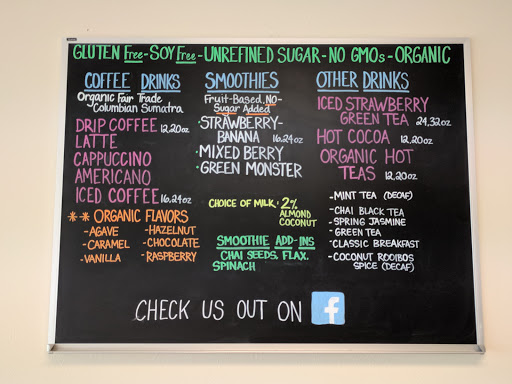 GLUTEN Free - SOY Free - UNREFINED SUGAR - NO GMOs - ORGANIC
COFFEE DRINKS
Organic Fair Trade
~Columbian Sumatra
DRIP COFFEE 12,20oz
LATTE
CAPPUCCINO
AMERICANO
ICED COFFEE 16,24oz
** ORGANIC FLAVORS
-AGAVE
-CARAMEL
-VANILLA
-HAZELNUT
-CHOCOLATE
-RASPBERRY
SMOOTHIES
Fruit-Based, No-
Sugar Added
·STRAWBERRY-
BANANA 16,24oz
·MIXED BERRY
·GREEN MONSTER
CHOICE OF MILK: 2%
ALMOND
COCONUT
SMOOTHIE ADD-INS
CHAI SEEDS, FLAX,
SPINACH
OTHER DRINKS
ICED STRAWBERRY
GREEN TEA 24,32oz
HOT COCOA 12,20oz
ORGANIC HOT
TEAS 12,20oz
-MINT TEA (DECAF)
-CHAI BLACK TEA
-SPRING JASMINE
-GREEN TEA
-CLASSIC BREAKFAST
-COCONUT ROOIBOS
SPICE (DECAF)
CHECK US OUT ON f